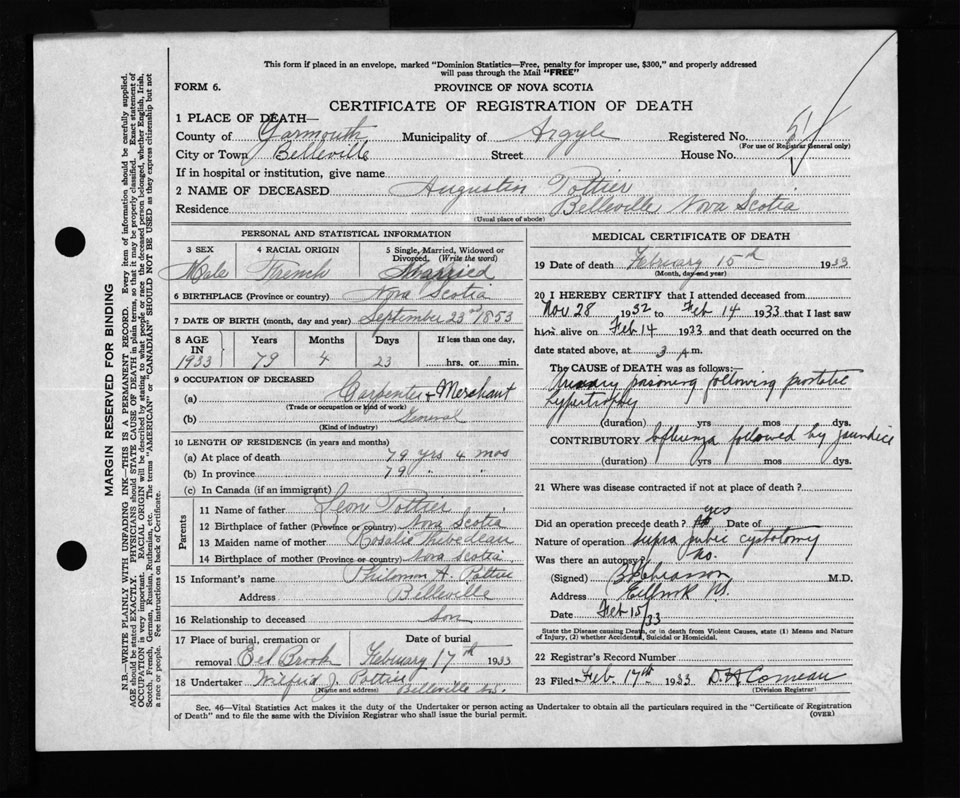 This form if placed in an envelope, marked "Dominion Statistics—Free, penalty for improper use, $300," and properly addressed
will pass through the Mail "FREE"
FORM 6.
PROVINCE OF NOVA SCOTIA
CERTIFICATE OF REGISTRATION OF DEATH
1 PLACE OF DEATH—
County of Yarmouth Municipality of Argyle Registered No. 5
(For use of Registrar General only)
City or Town Belleville Street House No.
If in hospital or institution, give name
2 NAME OF DECEASED Augustin Pottier
Residence Belleville Nova Scotia
(Usual place of abode)
PERSONAL AND STATISTICAL INFORMATION
3 SEX 4 RACIAL ORIGIN 5 Single, Married, Widowed or Divorced. (Write the word)
Male French Married
6 BIRTHPLACE (Province or country) Nova Scotia
7 DATE OF BIRTH (month, day and year) September 23rd 1853
8 AGE IN Years Months Days If less than one day,
1933 79 4 23 hrs. or min.
9 OCCUPATION OF DECEASED
(a) Carpenter & Merchant
(Trade or occupation or kind of work)
(b) General
(Kind of industry)
10 LENGTH OF RESIDENCE (in years and months)
(a) At place of death 79 yrs 4 mos
(b) In province 79 " "
(c) In Canada (if an immigrant)
Parents
11 Name of father Leon Pottier
12 Birthplace of father (Province or country) Nova Scotia
13 Maiden name of mother Rosalie Thibedeau
14 Birthplace of mother (Province or country) Nova Scotia
15 Informant's name Philomon A. Pottier
Address Belleville
16 Relationship to deceased son
17 Place of burial, cremation or removal Eel Brook Date of burial February 17th 1933
18 Undertaker Wilfrid J. Pottier Belleville N.S.
(Name and address)
MEDICAL CERTIFICATE OF DEATH
19 Date of death February 15 1933
(Month, day and year)
20 I HEREBY CERTIFY that I attended deceased from
Nov 28 1932 to Feb 14 1933 that I last saw
him alive on Feb 14 1933 and that death occurred on
date stated above, at 3 A m.
The CAUSE of DEATH was as follows:—
Urinary poisoning following prostatic
hypertrophy
(duration) yrs mos dys.
CONTRIBUTORY Influenza followed by jaundice
(duration) yrs mos dys.
21 Where was disease contracted if not at place of death?
Did an operation precede death? yes Date of
Nature of operation supra pubic cystotomy
Was there an autopsy? No.
(Signed) M.D.
Address Eelbrook NS.
Date Feb 15/33
State the Disease causing Death, or in death from Violent Causes, state (1) Means and Nature
of Injury, (2) whether Accidental, Suicidal or Homicidal.
22 Registrar's Record Number
23 Filed Feb. 17th 1933 D. A Comeau
(Division Registrar)
Sec. 46—Vital Statistics Act makes it the duty of the Undertaker or person acting as Undertaker to obtain all the particulars required in the "Certificate of Registration
of Death" and to file the same with the Division Registrar who shall issue the burial permit.
(OVER)
MARGIN RESERVED FOR BINDING
N.B.—WRITE PLAINLY WITH UNFADING INK—THIS IS A PERMANENT RECORD. Every item of information should be carefully supplied.
AGE should be stated EXACTLY. PHYSICIANS should STATE CAUSE OF DEATH in plain terms, so that it may be properly classified. Exact statement of
OCCUPATION is very important. RACIAL ORIGIN will be described by stating to what people or race the deceased person belonged, whether English, Irish,
Scotch, French, German, Russian, Ruthenian, etc. The terms "AMERICAN" or "CANADIAN" SHOULD NOT BE USED as they express citizenship but not
a race or people. See instructions on back of Certificate.